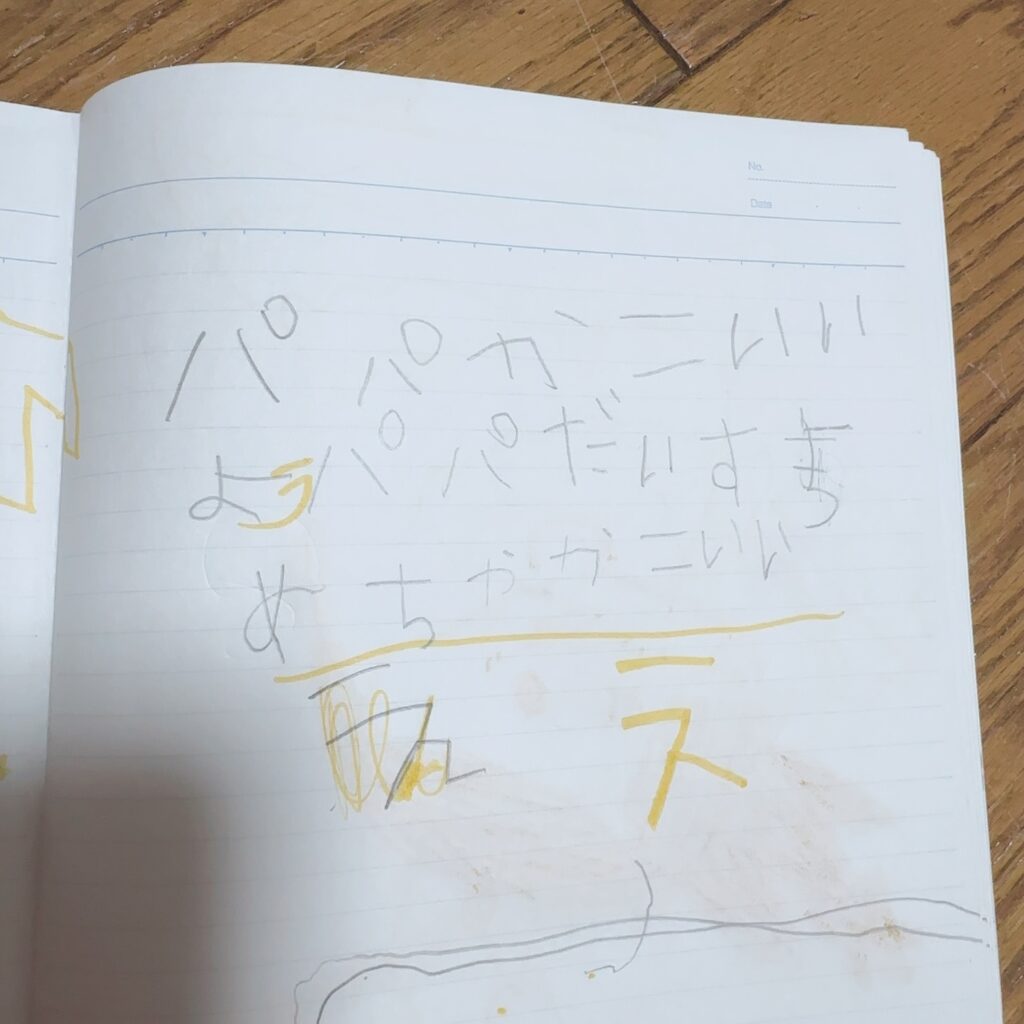 No.
Date
パパかこいい
よ パパだいすき
めちゃかこいい